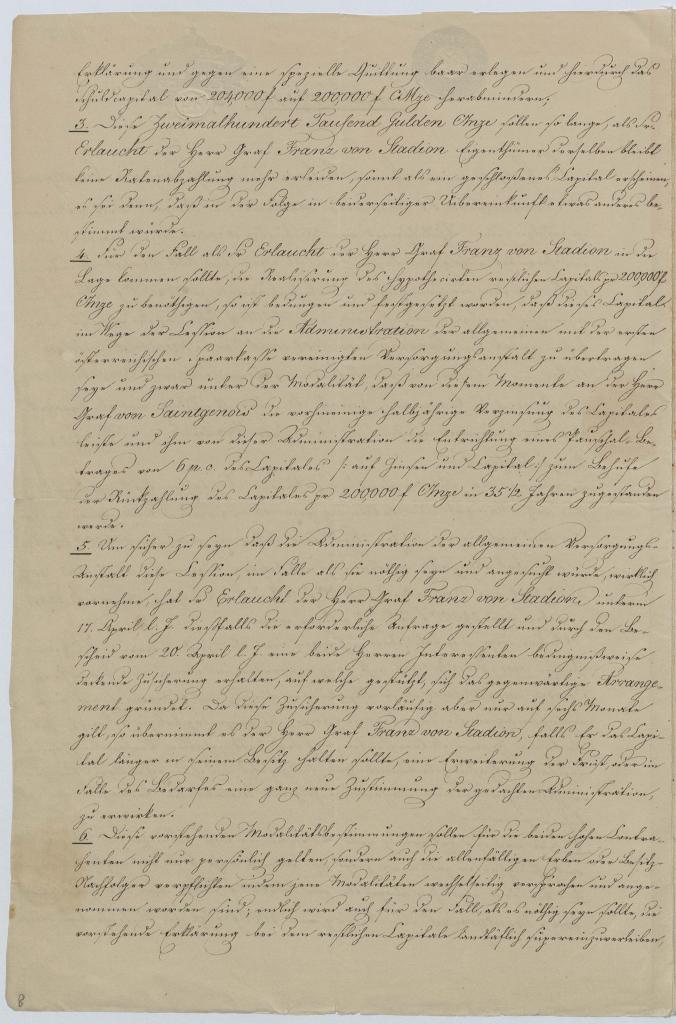 Erklärung und gegen eine spezielle Quittung baar erlegen und hierdurch das
Schuldcapital von 204000 f auf 200,000 f CMze herabmindern.
3. Diese Zweimalhundert Tausend Gulden CMze sollen so lange, als Se.
Erlaucht der Herr Graf Franz von Stadion Eigenthümer derselben bleibt
keine Ratenabzahlung mehr erleiden, somit als ein geschloßenes Capital erscheinen,
es sei denn, daß in der Folge in beiderseitiger Uebereinkunft etwas anderes be-
stimmt würde.
4. Für den Fall als Se Erlaucht der Herr Graf Franz von Stadion in die
Lage kommen sollte, die Realisirung des hypothecirten restlichen Capitals pr 200,000 f
CMze zu benöthigen, so ist bedungen und festgesetzt worden, daß dieses Capital
im Wege der Cession an die Administration der allgemeinen mit der ersten
österreichischen Spaarkasse vereinigten Versorgungsanstalt zu übertragen
seye und zwar unter der Modalität, daß von diesem Momente an der Herr
Graf von Saintgenois die vorhineinige halbjährige Verzinsung des Capitales
leiste und ihm von dieser Administration die Entrichtung eines Pauschal-Be-
trages von 6 p. c. des Capitales /: auf Zinsen und Capital :/ zum Behufe
der Rückzahlung des Capitales pr 200,000 f CMze in 35 1/2 Jahren zugestanden
werde.
5. Um sicher zu seyn daß die Administration der allgemeinen Versorgungs-
Anstalt diese Cession, im Falle als sie nöthig seyn und angesucht würde, wirklich
vornehme, hat Se Erlaucht der Herr Graf Franz von Stadion, unterm
17. April l. J. dießfalls die erforderliche Anfrage gestellt und durch den Be-
scheid vom 20. April l. J. eine beide Herren Interessenten bedingnißweise
deckende Zusicherung erhalten, auf welche gestützt, sich das gegenwärtige Arrange-
ment gründet. Da diese Zusicherung vorläufig aber nur auf sechs Monate
gilt, so übernimmt es der Herr Graf Franz von Stadion, falls Er das Capi-
tal länger in seinem Besitz halten sollte, eine Erweiterung der Frist, oder im
Falle des Bedarfes eine ganz neue Zustimmung der gedachten Administration,
zu erwirken.
6. Diese vorstehenden Modalitätsbestimmungen sollen für die beiden hohen Contra-
henten nicht nur persönlich gelten, sondern auch die allenfälligen Erben oder Besitz-
Nachfolger verpflichten indem jene Modalitäten wechselseitig versprochen und ange-
nommen worden sind; endlich wird auch für den Fall, als es nöthig seyn sollte, die
vorstehende Erklärung bei dem restlichen Capitale landtäflich supereinzuverleiben,
8